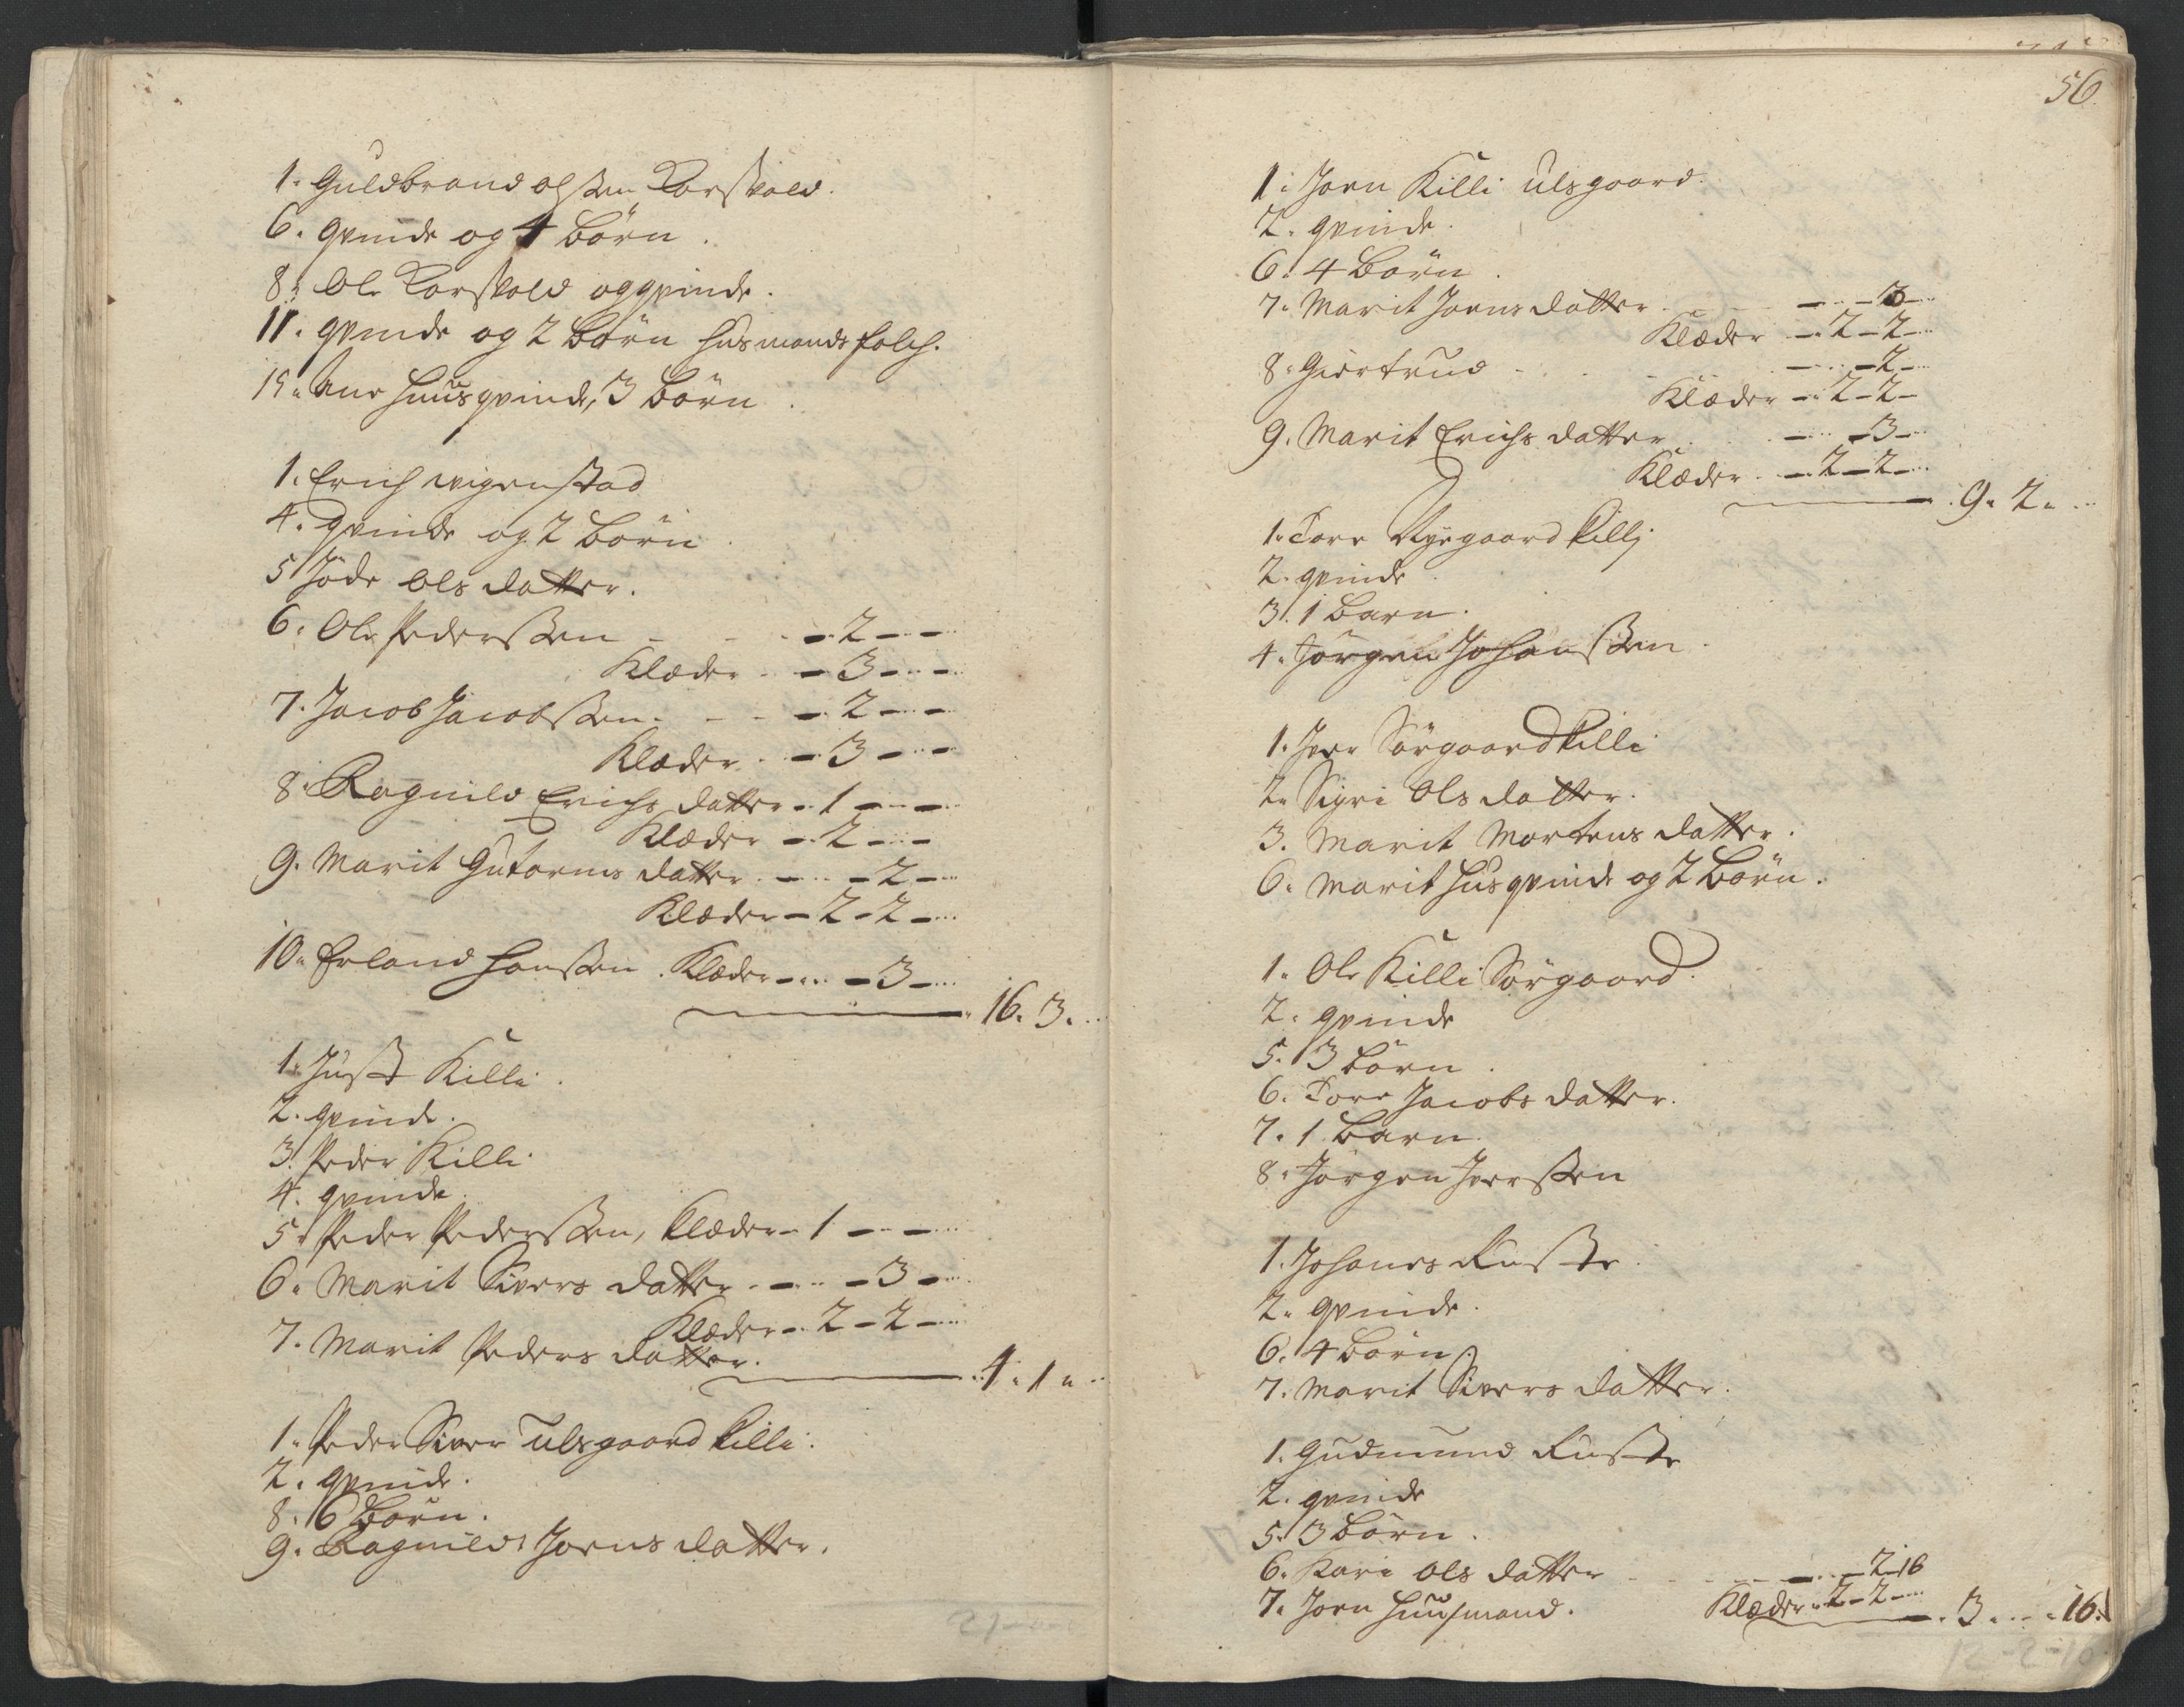 1. Guldbrand olssen Korsvold.
6. qvinde og 4 börn.
8. Ole Korsvold og qvinde.
11. qvinde og 2 börn husmands folch.
15. Ane huusqvinde, 3 börn.
1. Erich wigenstad
4. qvinde og 2 börn.
5 Jöde Ols datter.
6. Ole Pederssen - - - 2 - -
Klæder - 3 - -
7. Jacob Jacobssen. - - 2 - -
Klæder - 3 - -
8. Ragnild Erichs datter - 1 - -
Klæder - 2 - -
9. Marit Gutorms datter. - - 2 -
Klæder - 2 - 2 -
10. Erland Hanssen. Klæder - - 3 -
16. 3.
1. Just Killi.
2. qvinde.
3. Peder Killi
4. qvinde.
5. Peder Pederssen, klæder - 1 - -
6. Marit Sivers datter - - 3 -
Klæder - 2 - 2 -
7. Marit Peders datter.
4. 1.
1. Peder Siver Ulsgaard killi.
2. qvinde.
8. 6 börn.
9. Ragnild Joens datter.
21 - -
56.
1. Joen Killi Ulsgaard.
2. qvinde.
6. 4 börn.
7. Marit Joens datter - - 3 -
Klæder - 2 - 2 -
8. Giertrud - - 2 -
Klæder - 2 - 2 -
9. Marit Erichs datter - - 3 -
Klæder - 2 - 2 -
9. 2.
1. Tore Nyegaard killj
2. qvinde.
3. 1 barn.
4. Jörgen Johanssen.
1. Iver Sörgaard killi
2. Sigri Ols datter.
3. Marit Mortens datter.
6. Marit husqvinde og 2 börn.
1. Ole Killi Sörgaard.
2. qvinde
5. 3 börn.
6. Tore Jacobs datter.
7. 1 barn.
8. Jörgen Iverssen
1. Johanes Ruste.
2. qvinde.
6. 4 börn.
7. Marit Sivers datter.
1. Gudmund Ruste
2. qvinde
5. 3 börn.
6. Kari Ols datter - - 2 - 16
Klæder - 2 - 2 -
7. Joen huusmand.
3. - 16.
12 - 2 - 16